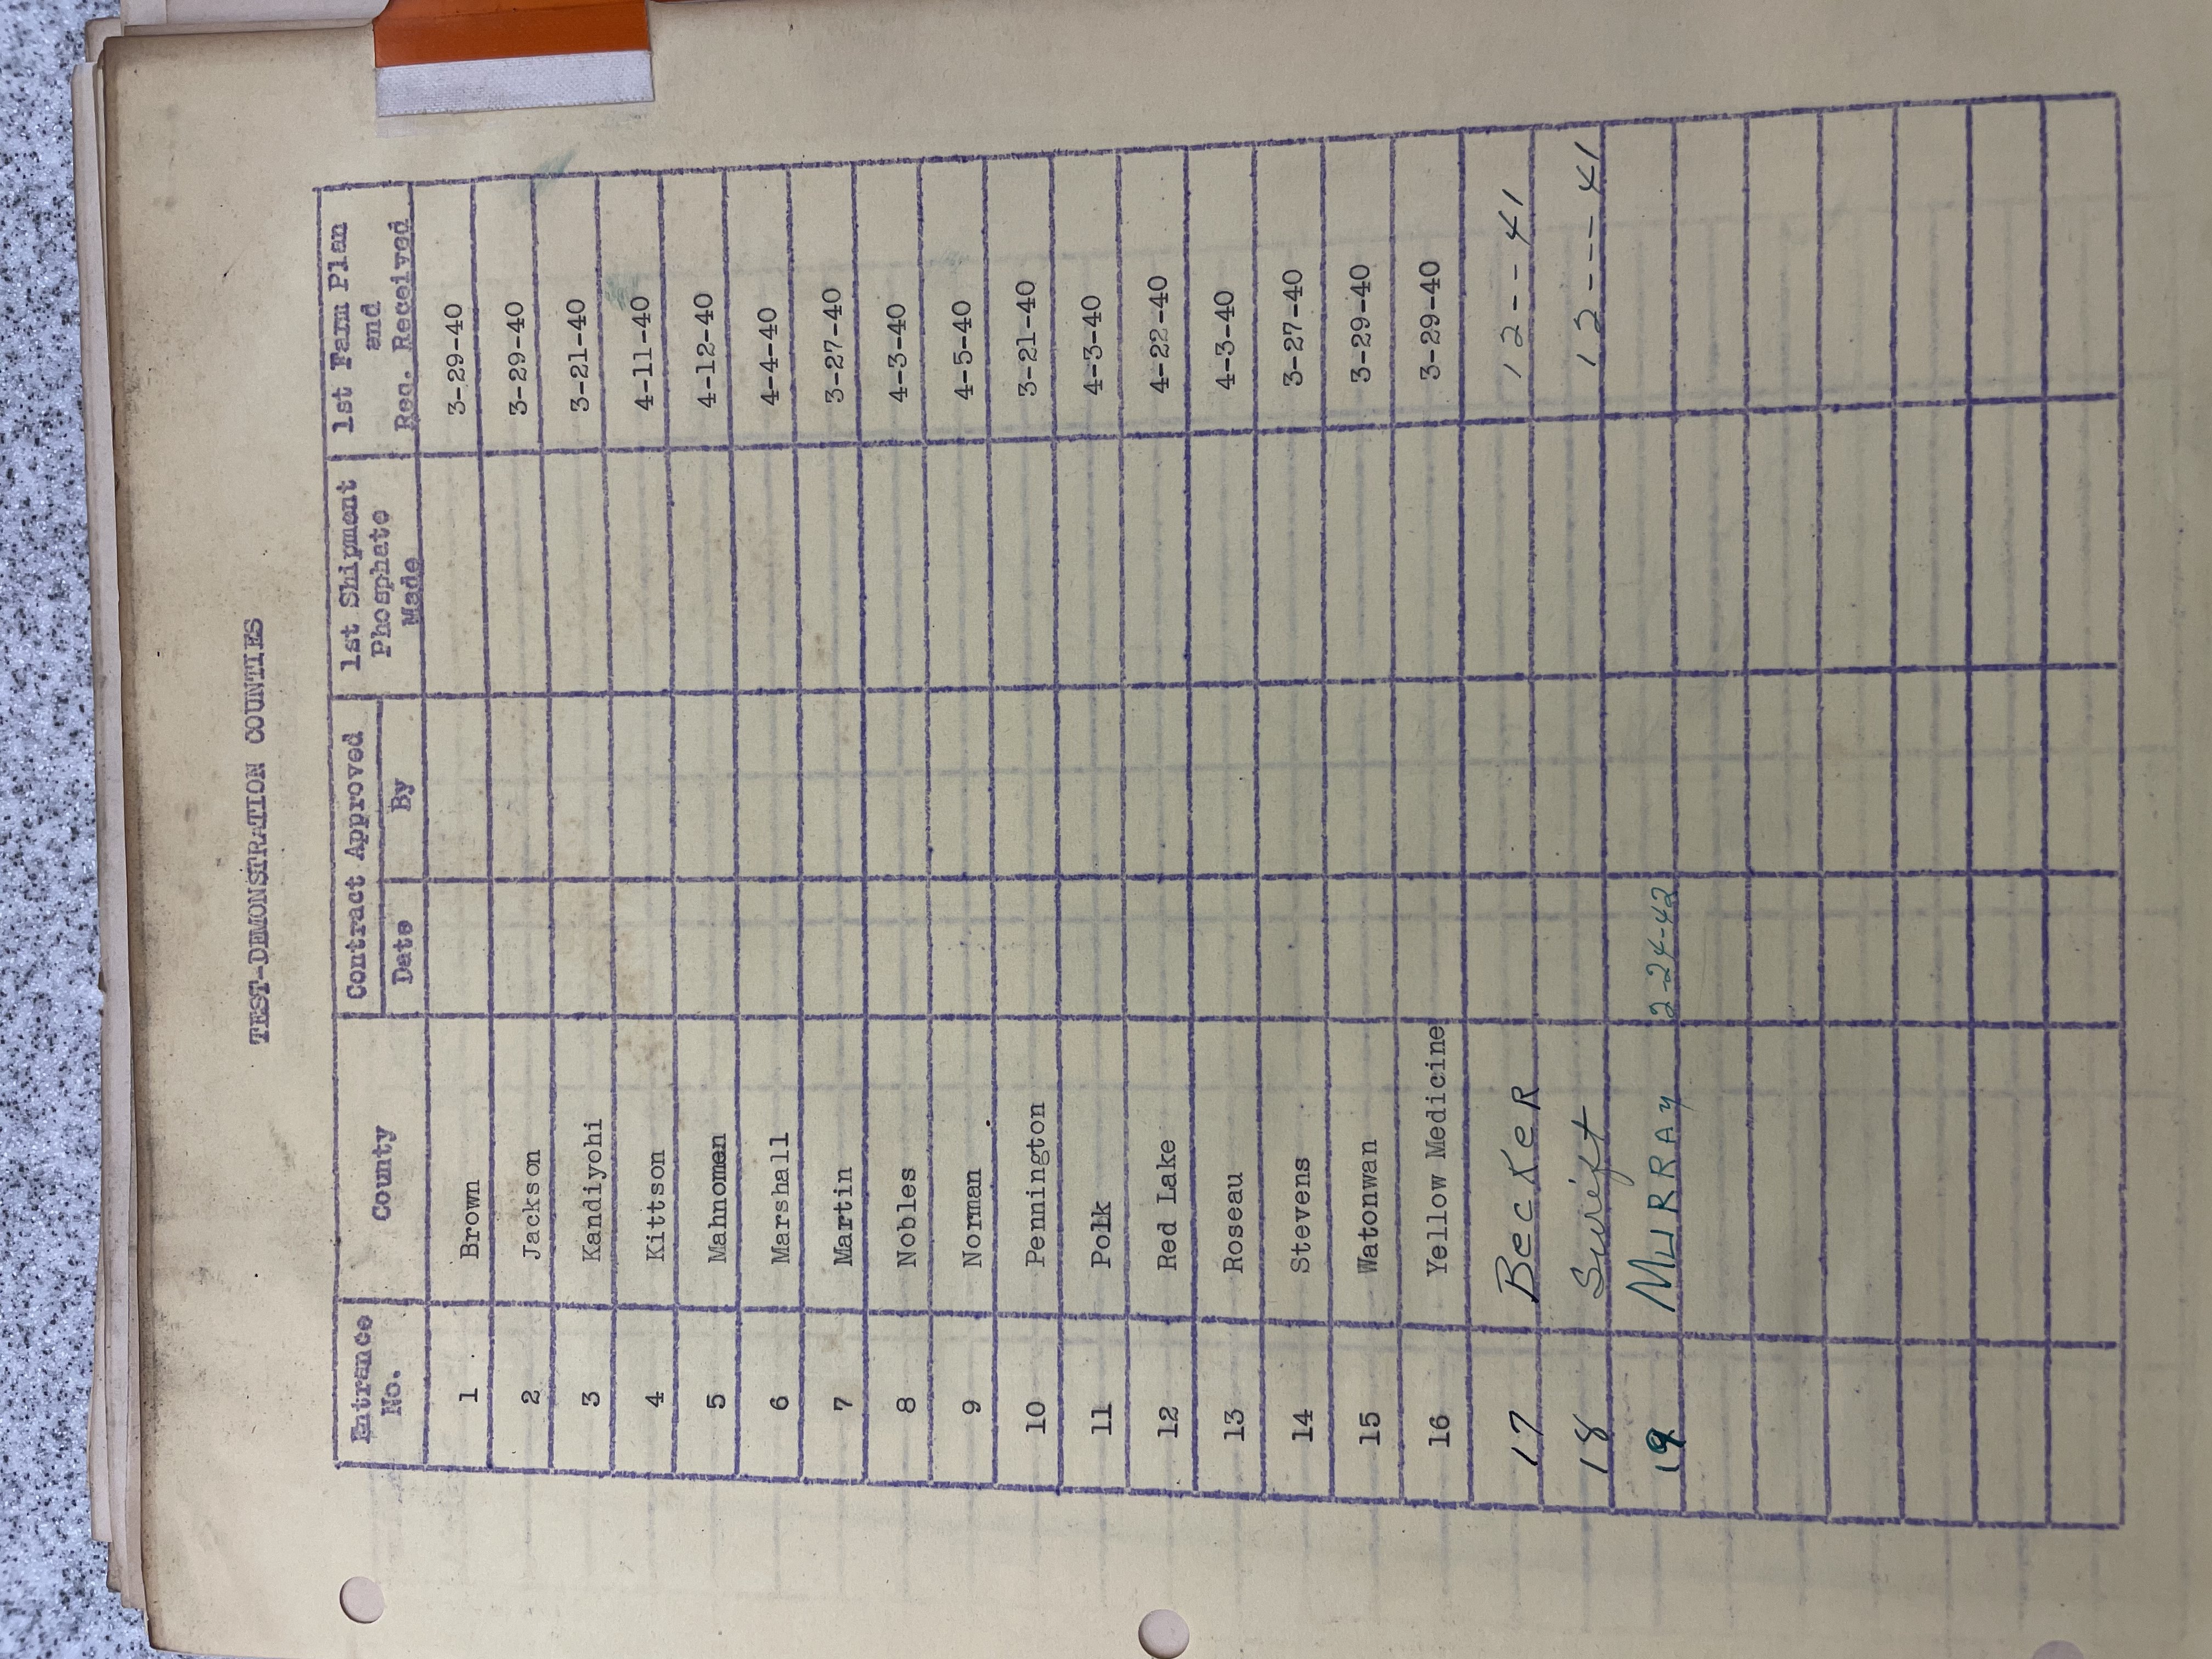 TEST-DEMONSTRATION COUNTIES
Entrance No. County Contract Approved Date By 1st Shipment Phosphate Made 1st Farm Plan and Req. Received
1 Brown 3-29-40
2 Jackson 3-29-40
3 Kandiyohi 3-21-40
4 Kittson 4-11-40
5 Mahnomen 4-12-40
6 Marshall 4-4-40
7 Martin 3-27-40
8 Nobles 4-3-40
9 Norman 4-5-40
10 Pennington 3-21-40
11 Polk 4-3-40
12 Red Lake 4-22-40
13 Roseau 4-3-40
14 Stevens 3-27-40
15 Watonwan 3-29-40
16 Yellow Medicine 3-29-40
17 Becker 12--41
18 Swift 12---41
19 Murray 2-24-42